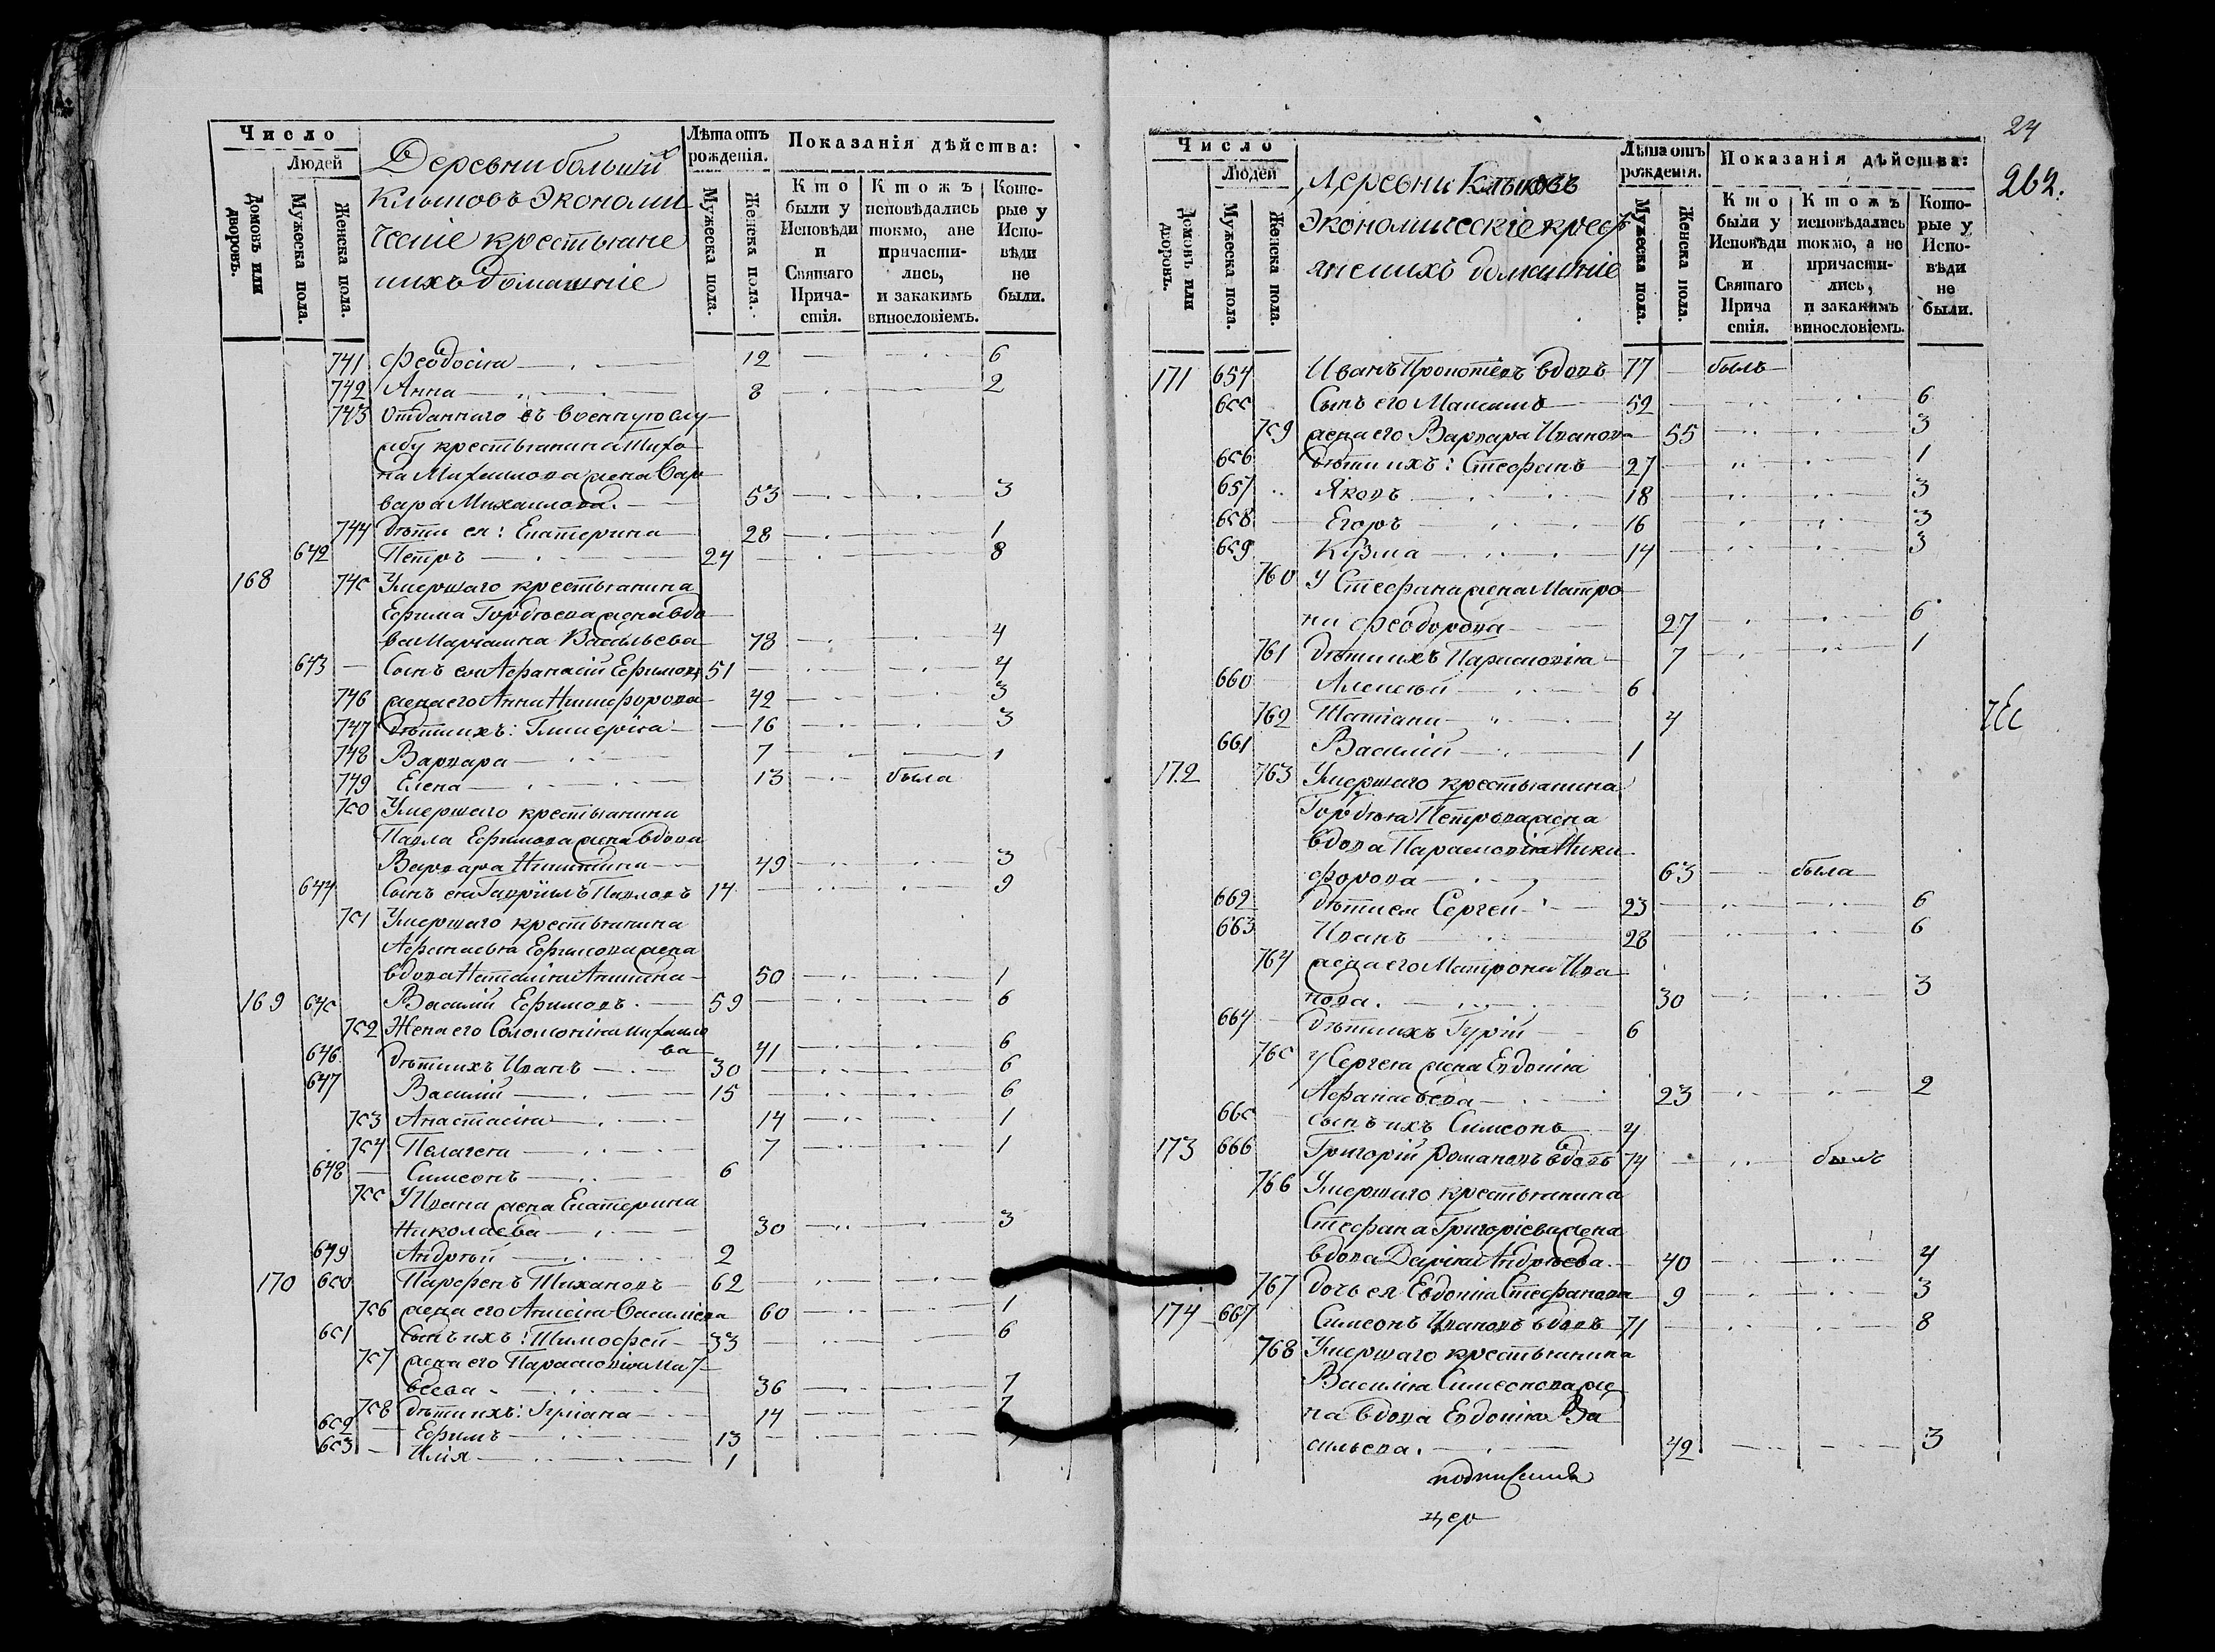 Число
Людей
Домовъ или дворовъ.
Мужеска пола.
Женска пола.
Деревни больших
Клыковъ Экономи
ческіе крестьяне
иихъ домашніе
Лѣта отъ рожденія.
Мужеска пола.
Женска пола.
Показанія дѣйства:
Кто были у Исповѣди и Святаго Причастія.
Ктожъ исповѣдались токмо, ане причастились, и закакимъ винословіемъ.
Которые у Исповѣди не были.
741 Феодосія 12 6
742 Анна 8 2
743 Отданнаго въ военную слу
жбу крестьянина Тихо
на Михаилова жена Вар
вара Михаилова. 53 3
744 дѣти ея: Екатерина 28 1
642 Петръ 24 8
168 745 Умершаго крестьянина
Ефима Гордѣева жена вдо
ва Маріамна Васильева 78 4
643 Сынъ ея Афанасій Ефимовъ 51 4
746 жена его Анна Никифорова 42 3
747 Дѣти ихъ: Гликерія 16 3
748 Варвара 7 1
749 Елена 13 была
750 Умершаго крестьянина
Павла Ефимова жена вдова
Варвара Никитина 49 3
644 Сынъ ея Гавріилъ Павловъ 14 9
751 Умершаго крестьянина
Афанасья Ефимова жена
вдова Наталія Аникина 50 1
169 645 Василій Ефимовъ 59 6
752 Жена его Соломонія михаило
ва 41 6
646 дѣти ихъ Иванъ 30 6
647 Василій 15 6
753 Анастасія 14 1
754 Пелагея 7 1
648 Симеонъ 6
755 У Ивана жена Екатерина
Николаева 30 3
649 Андрей 2
170 650 Парфенъ Тихановъ 62
756 жена его Анисія Васильева 60 1
651 Сынъ ихъ: Тимофей 33 6
757 жена его Парасковія Ма
веева 36 7
758 дѣти ихъ: 14
652 Ефимъ 13
653 Илія 1
24
262.
Число
Людей
Домовъ или дворовъ.
Мужеска пола.
Женска пола.
Деревни Клыковъ
Экономическіе крест
яне иихъ домашніе
Лѣта отъ рожденія.
Мужеска пола.
Женска пола.
Показанія дѣйства:
Кто были у Исповѣди и Святаго Прича стія.
Ктожъ исповѣдались токмо, а не причастились, и закакимъ винословіемъ.
Которые у Исповѣди не были.
171 654 Иванъ Прокопіевъ вдовъ 77 былъ
655 Сынъ его Максимъ 52 6
759 жена его Варвара Иванова 55 3
656 Дѣти ихъ: Стефанъ 27 1
657 Яковъ 18 3
658 Егоръ 16 3
659 Кузма 14 3
760 У Стефана жена Матро
на Феодорова 27 6
761 Дѣти ихъ Парасковія 7 1
660 Алексѣй 6
762 Татіана 4
661 Василій 1
172 763 Умершаго крестьянина
Гордѣя Петрова жена
вдова Парасковія Ники
форова 63 была
662 дѣти ея Сергей 23 6
663 Иванъ 28 6
764 жена его Матрона Ива
нова. 30 3
664 Дѣти ихъ Гурій 6
765 у Сергея жена Евдокія
Афанасьева 23 2
665 сынъ ихъ Симеонъ 4
173 666 Григорій Романовъ вдовъ 74 былъ
766 Умершаго крестьянина
Стефана Григорієва жена
вдова Дарія Андреева. 40 4
767 дочь ея Евдокія Стефанова 9 3
174 667 Симеонъ Ивановъ вдовъ 71 8
768 Умершаго крестьянина
Василія Симеонова же
на вдова Евдокія Ва
сильева. 42 3